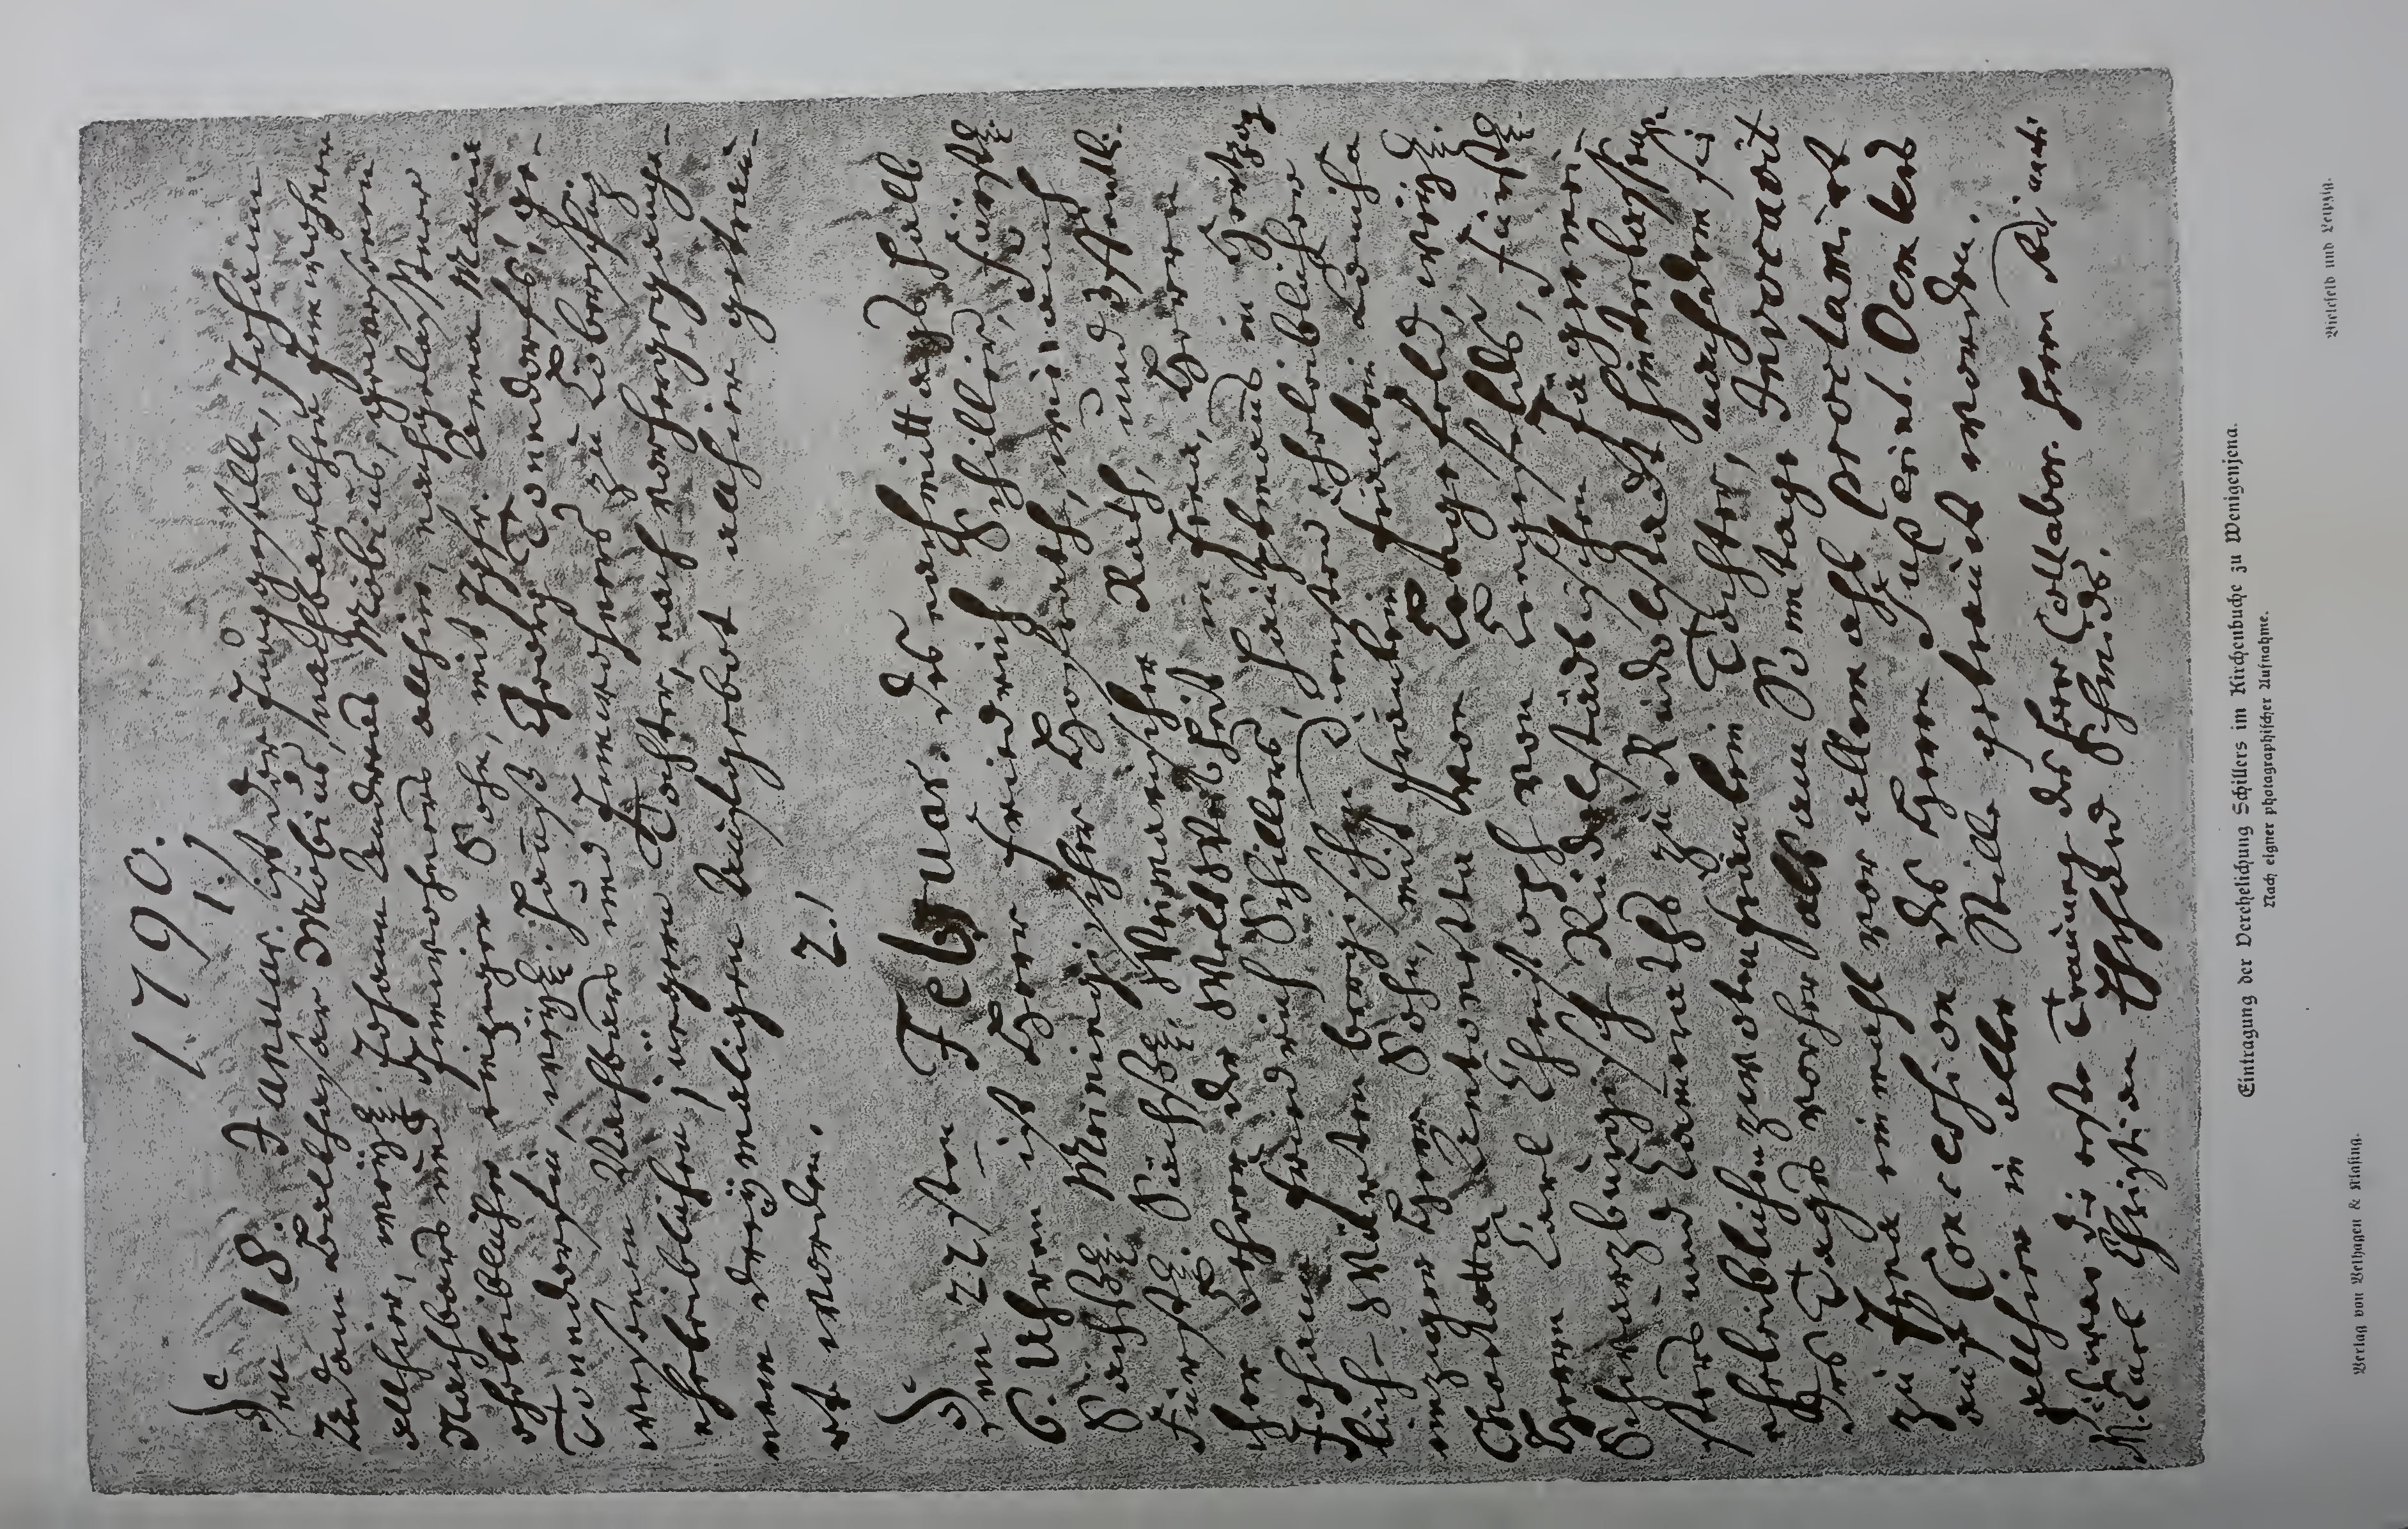 1790.
1.)
Den 18. Januar. ist der Junggeselle, Johann
Adam Balthasar Möbius, nachbarlicher Einwohner
allhier, weyl. Johann Andreas Möbius, gewesenen
Nachbars und Einwohners allhier, nachgelassener
ehrleiblicher einziger Sohn, mit Jgfr. Anna Marie
Tonndorfin, weyl. Hanß Georg Tonndorfs, ge-
wesenen Nachbars und Einwohners zu Löberschütz
ehrleiblichen jüngern Tochter, nach vorhergegange-
nem dreymaligen Aufgebot allhier getrau-
et worden.
2.)
Den 22sten Februar. des nachmittags halb
6. Uhr ist Herr Friedrich Schiller, Fürstl.
Sächß. Meiningischer Hofrath, wie auch
Fürstl. Sächß. Weimarischer Rath, und öffentli-
cher Lehrer der Weltweisheit in Jena, Herrn
Johann Friedrich Schillers, Hauptmanns in Herzog-
lich-Würtenbergischen Diensten ehrleiblicher
einziger Herr Sohn, mit Fräulein Louisa
Charlotta Antonetta von Lengefeld, weyl.
Herrn Carl Christoph von Lengefelds, Fürstl.
Schwarzburgisch Rudolstädtischen Jägermei-
sters und Kammeraths zu Rudolstadt hinterlassene
ehrleiblichen zwoten Fräulein Tochter, nachdem sie
Tages vorher als am Sonntage Invocavit
zu Jena einmahl vor allemahl proclamirt
auf Concession des Herrn Superint. Oemlers
allhier in aller Stille getrauet worden.
Dieses war die erste Trauung des Herr Collabor. Herrn Adjuncti
M. Carl Christian Erhard Schmids.
Eintragung der Verehelichung Schillers im Kirchenbuche zu Wenigenjena.
Nach eigner photographischer Aufnahme.
Verlag von Velhagen & Klasing.
Bielefeld und Leipzig.